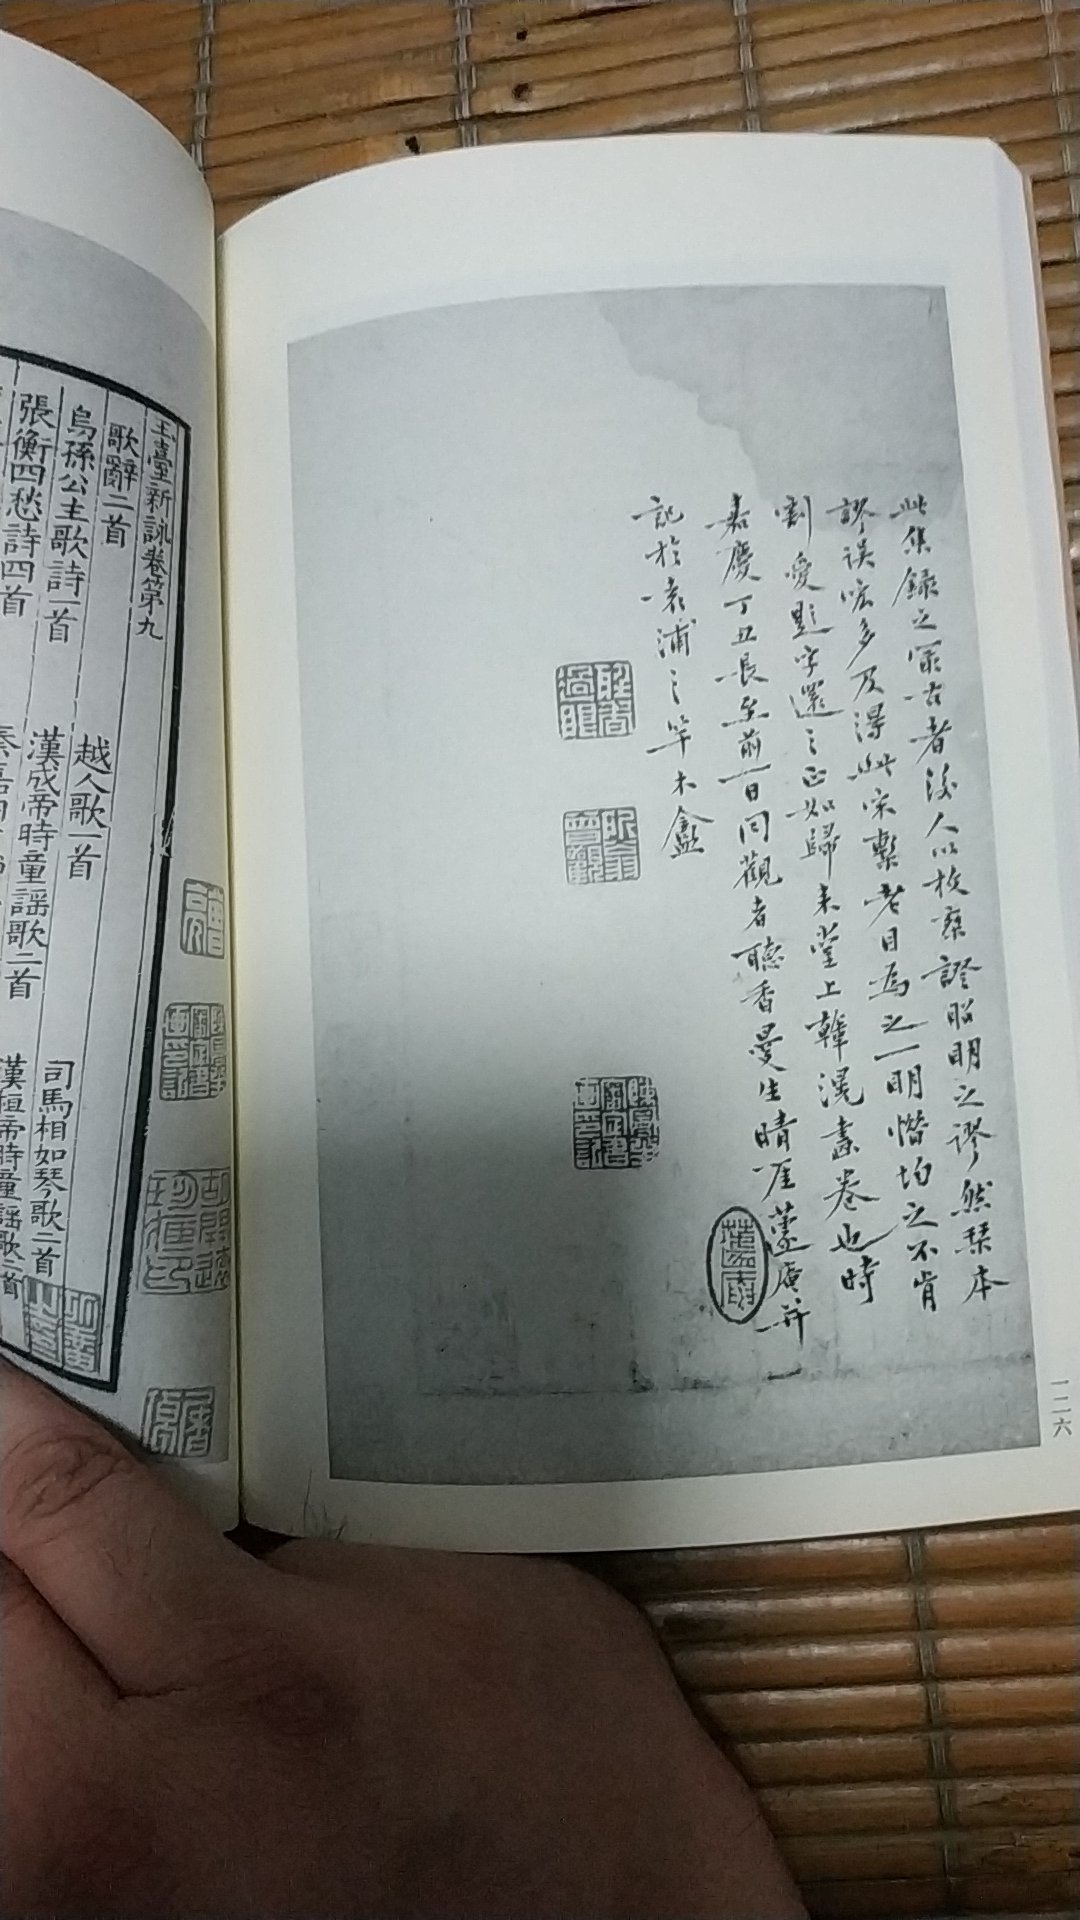 此集錄之冣古者後人以校案證昭明之謬然琹本
謬誤宏多及得此宋槧老目為之一明惜均之不肯
割愛題字還之正如歸来堂上韓滉畫卷也時
嘉慶丁丑長至前一日同觀者聽香曼生晴厓蘆庵并
記於袁浦之竿木盦
一二六
玉臺新詠卷第九
歌辭二首
越人歌一首
司馬相如琴歌二首
烏孫公主歌詩一首
漢成帝時童謠歌二首
漢桓帝時童謠歌二首
張衡四愁詩四首